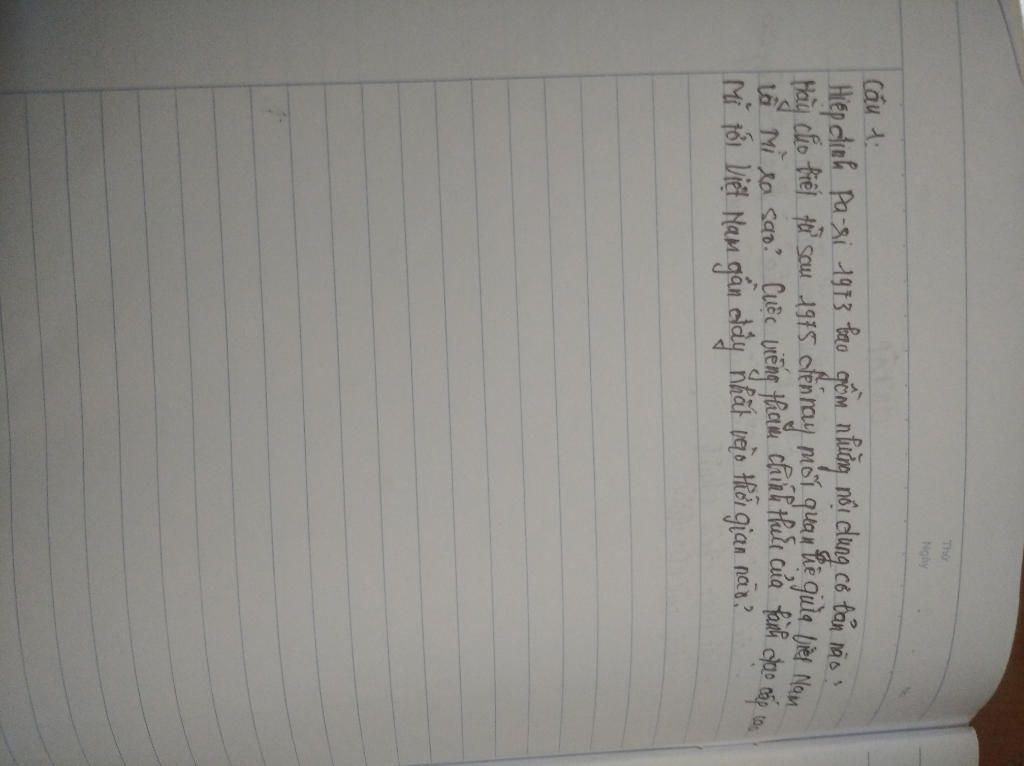 Thứ
Ngày
Câu 1:
Hiệp định Pa-ri 1973 bao gồm những nội dung cơ bản nào?
Hãy cho biết từ sau 1975 đến nay mối quan hệ giữa Việt Nam
và Mĩ ra sao? Cuộc viếng thăm chính thức của lãnh đạo cấp cao
Mĩ tới Việt Nam gần đây nhất vào thời gian nào?